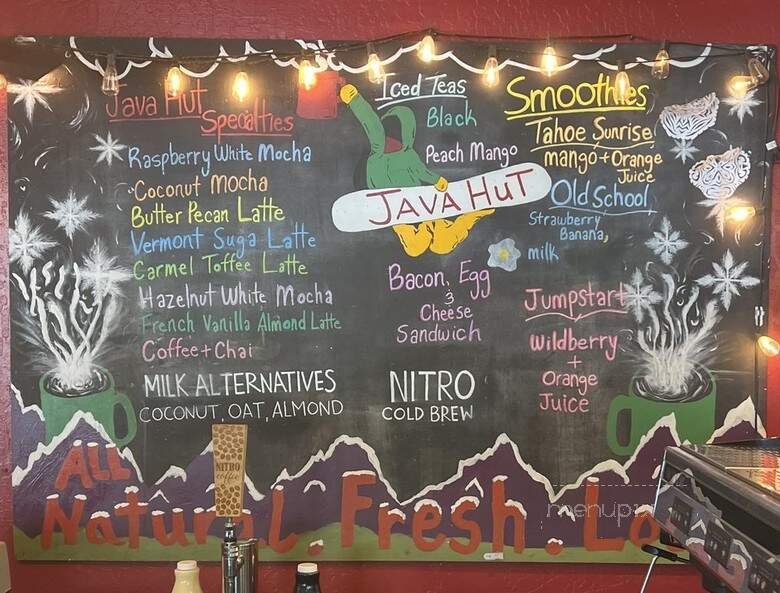 Java Hut
Specialties
Raspberry White Mocha
Coconut Mocha
Butter Pecan Latte
Vermont Suga Latte
Carmel Toffee Latte
Hazelnut White Mocha
French Vanilla Almond Latte
Coffee + Chai
MILK ALTERNATIVES
COCONUT, OAT, ALMOND
Iced Teas
Black
Peach Mango
JAVA HUT
Bacon, Egg
&
Cheese
Sandwich
NITRO
COLD BREW
Smoothies
Tahoe Sunrise
mango + Orange
Juice
Old School
Strawberry
Banana,
milk
Jumpstart
Wildberry
+
Orange
Juice
NITRO
coffee
ALL
Natural. Fresh. Lo
menupix